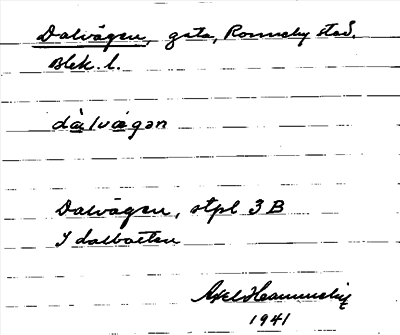 Dalvägen, gata, Ronneby stad.
Blek. l.
dàlvägən
Dalvägen, stpl 3 B
I dalbotten
Axel
1941